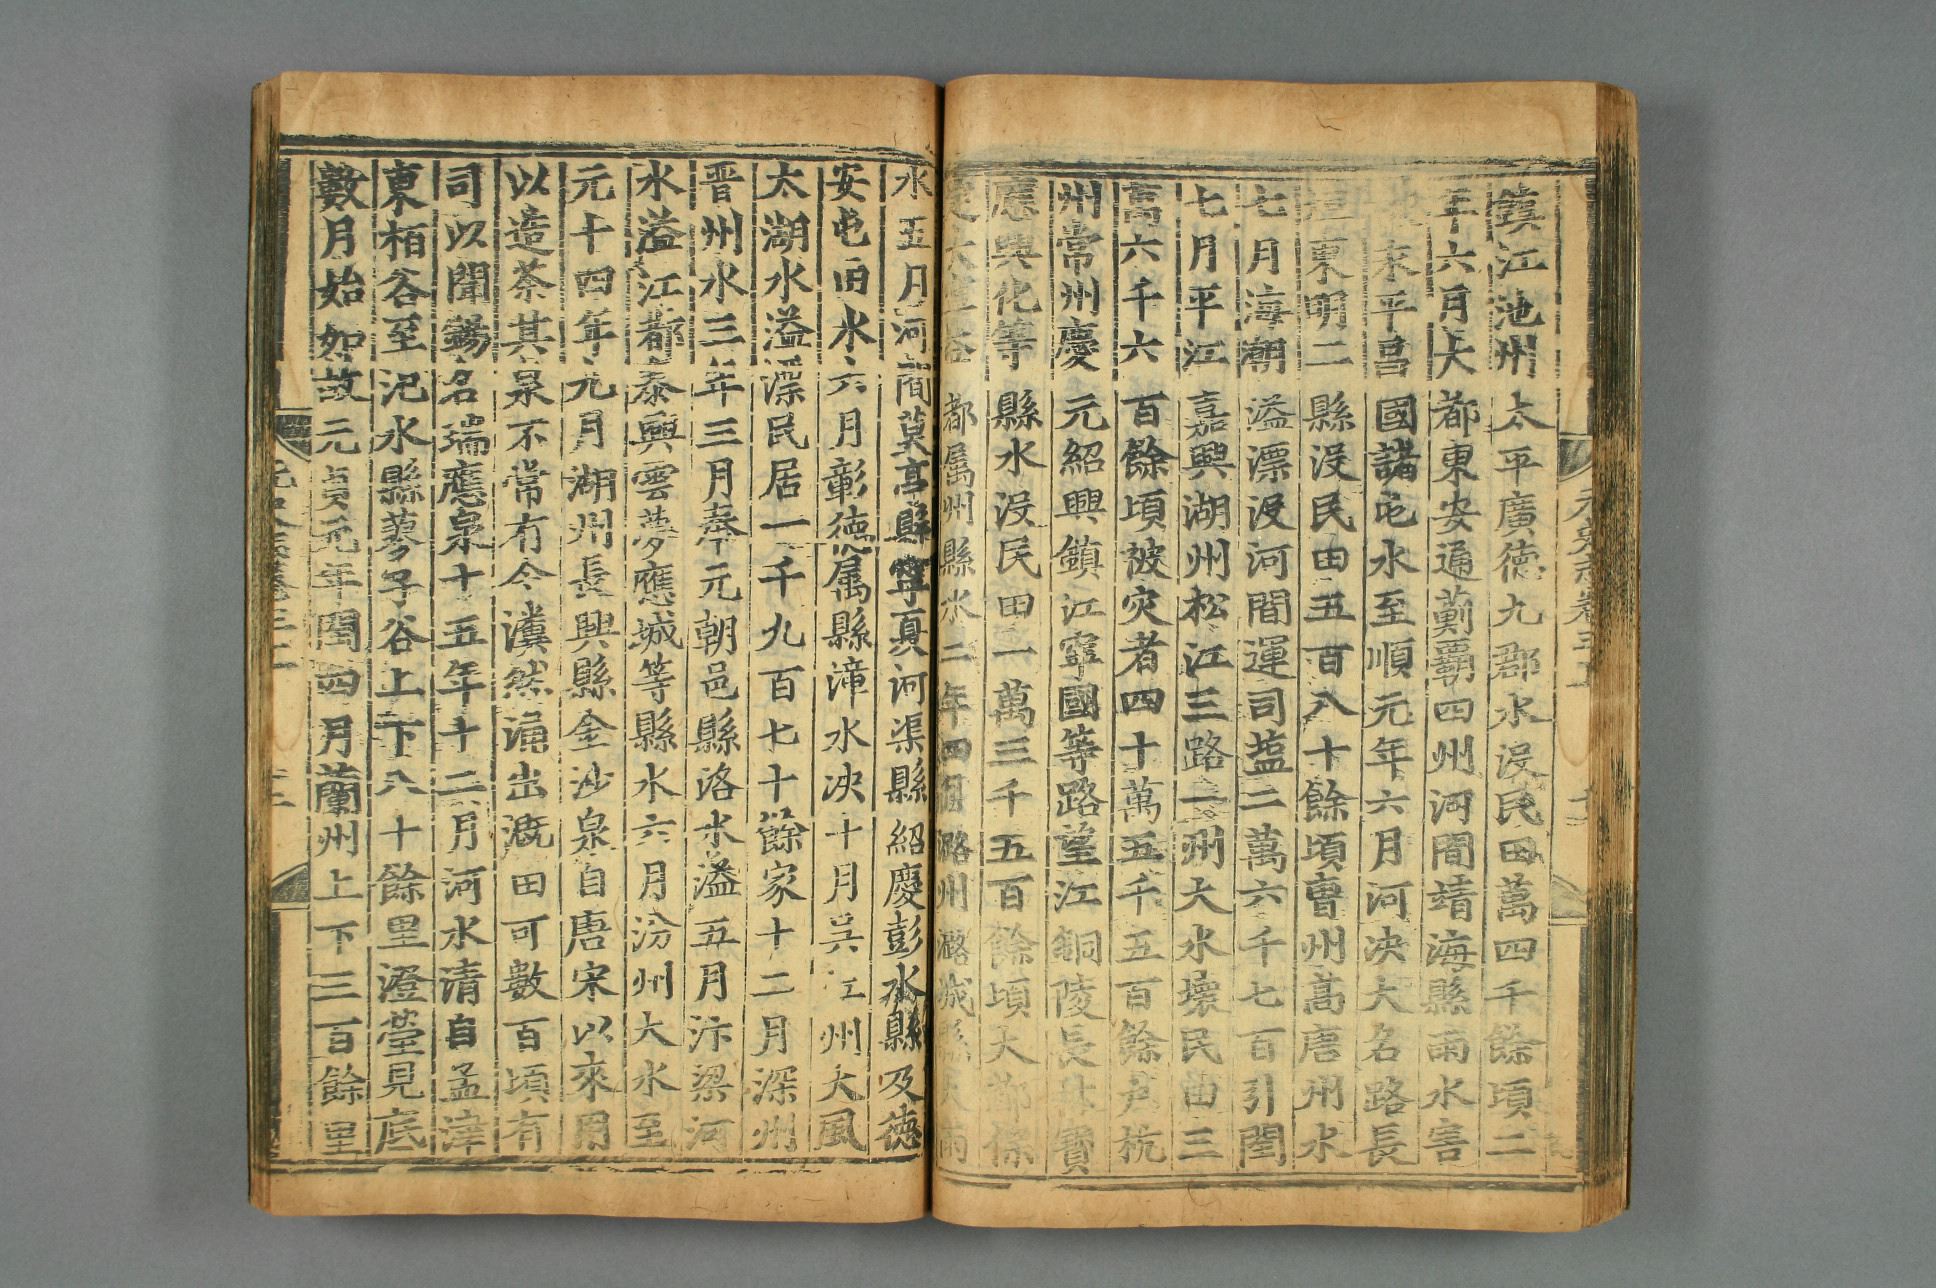 鎮江池州太平廣德九郡水没民田萬四千餘頃二
年六月大都東安通薊霸四州河間靖海縣雨水害
末平昌國諸屯水至順元年六月河決大名路長
垣東明二縣没民田五百八十餘頃曹州高唐州水
七月海潮溢漂没河間運司塩二萬六千七百引閏
七月平江嘉興湖州松江三路一州大水壞民田三
萬六千六百餘頃被灾者四十萬五千五百餘戸杭
州常州慶元紹興鎮江寧國等路望江銅陵長林寶
應興化等縣水没民田一萬三千五百餘頃大都保
都属州縣水二年四月潞州潞城縣大雨
水五月河間莫亭縣寧夏河渠縣紹慶彭水縣及德
安屯田水六月彰德属縣漳水決十月吳江州大風
太湖水溢漂民居一千九百七十餘家十二月深州
晋州水三年三月奉元朝邑縣洛水溢五月汴梁河
水溢江都泰興雲夢應城等縣水六月汾州大水至
元十四年九月湖州長興縣金沙泉自唐宋以來用
以造茶其泉不常有今瀵然涌出溉田可數百頃有
司以聞錫名瑞應泉十五年十二月河水清自孟津
東柏谷至汜水縣蓼子谷上下八十餘里澄瑩見底
數月始如故元貞元年閏四月蘭州上下三百餘里